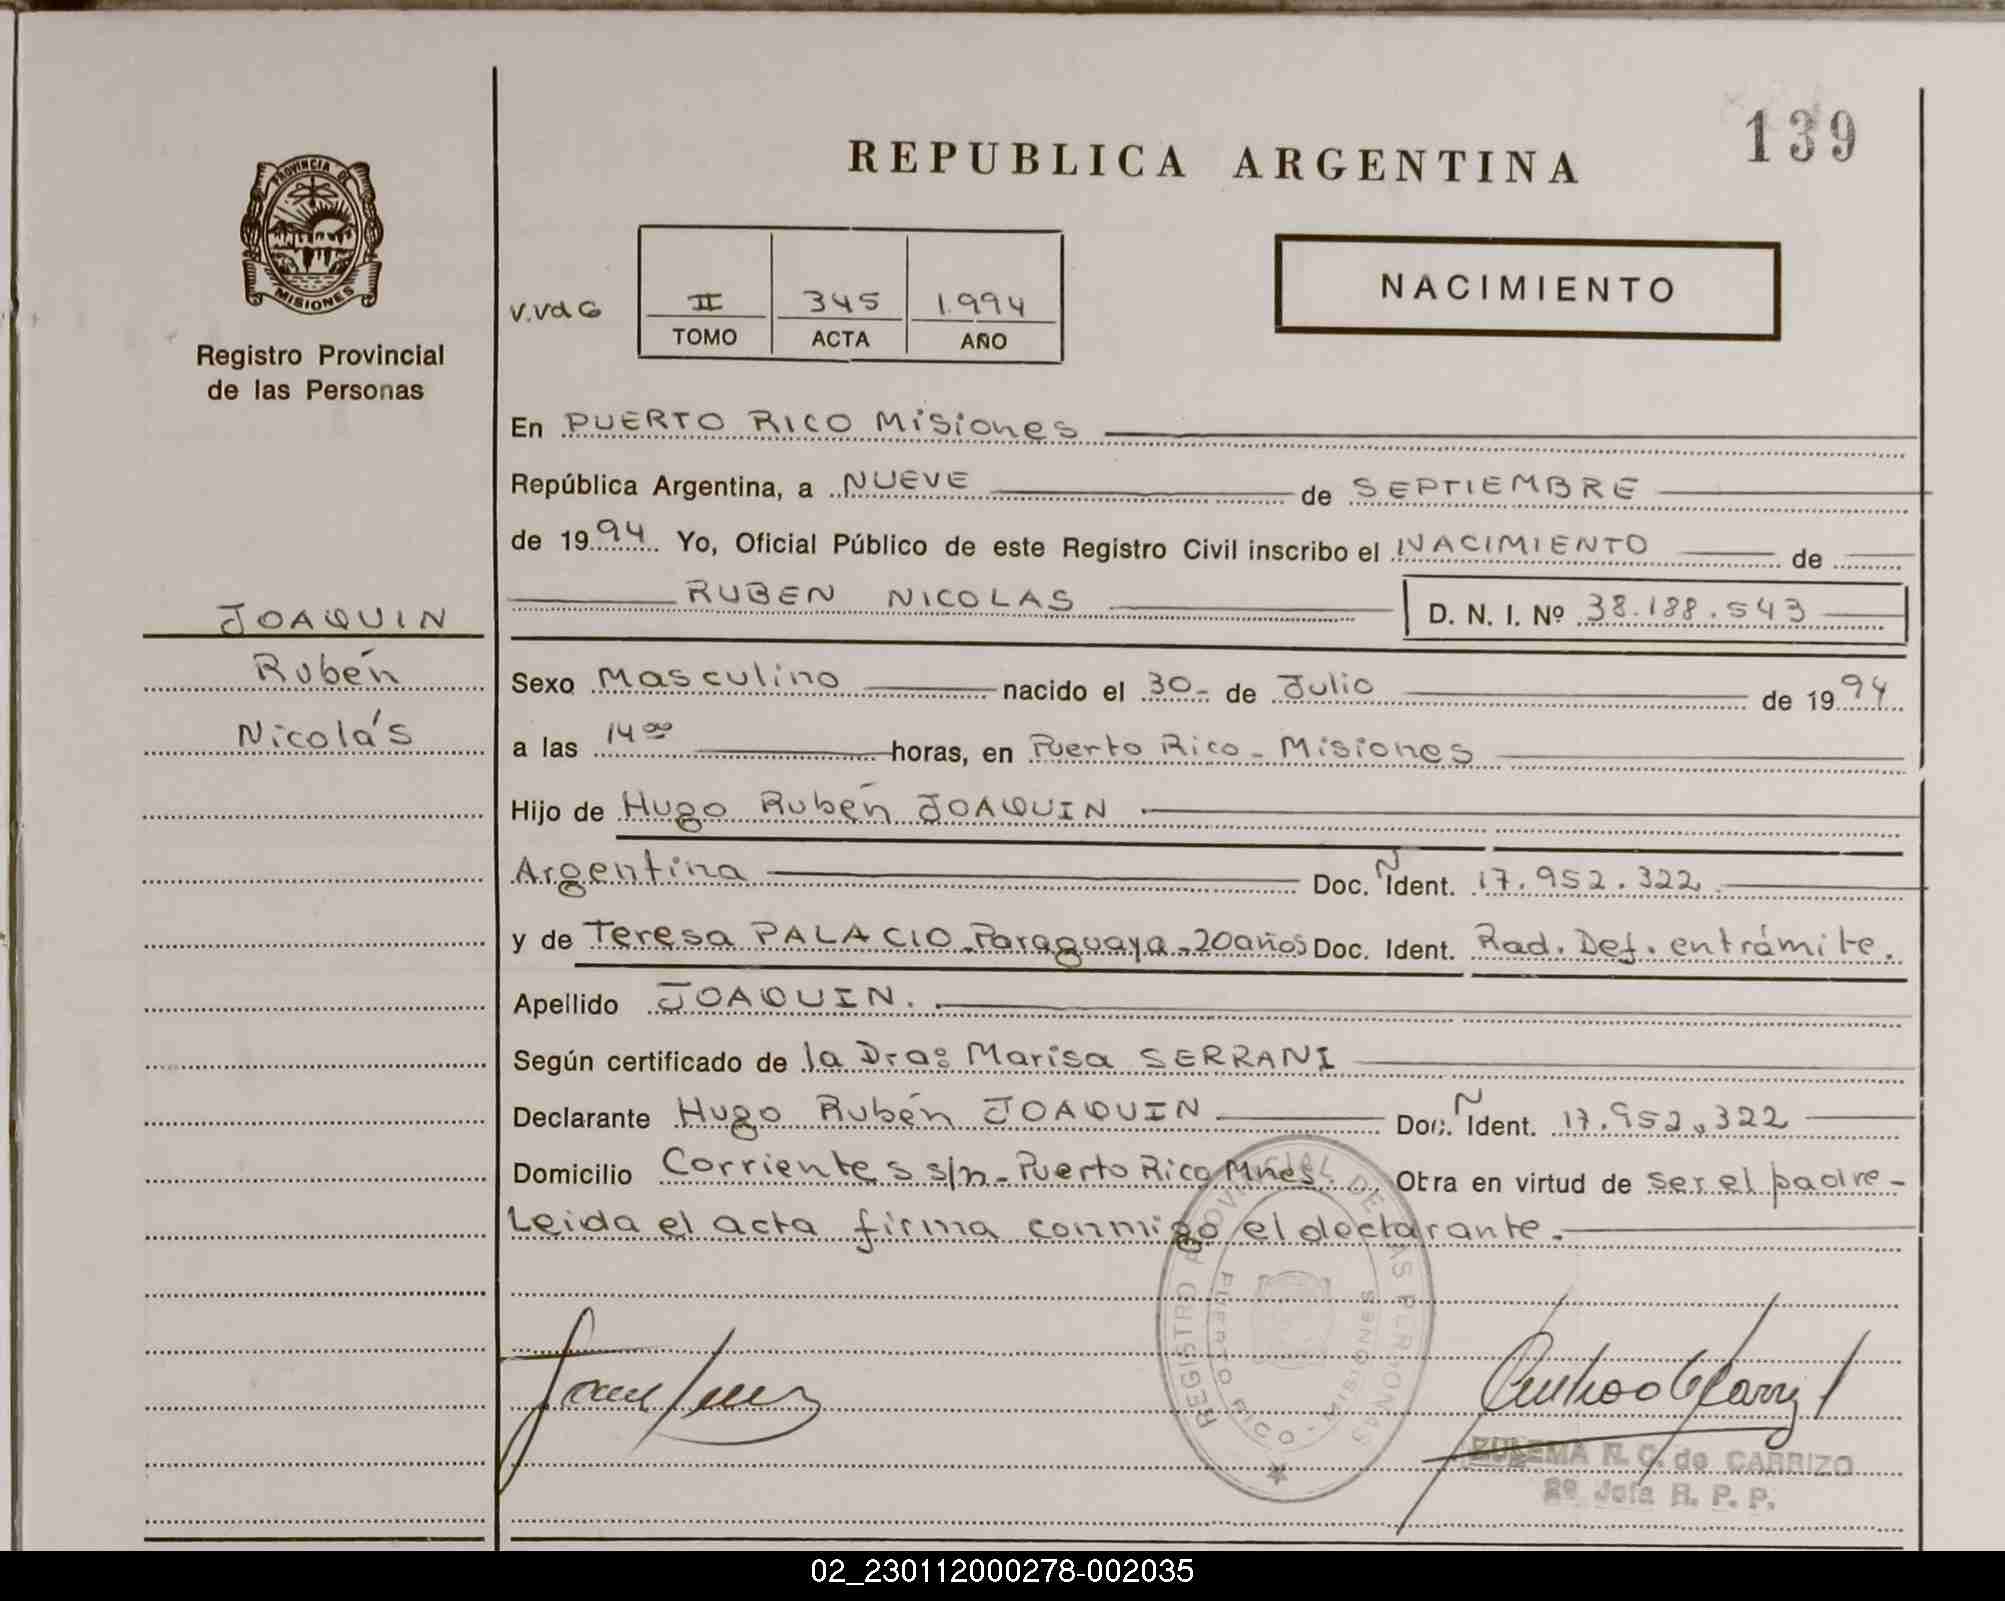 139
REPUBLICA ARGENTINA
PROVINCIA DE
MISIONES
Registro Provincial
de las Personas
V.VdG
II 345 1.994
TOMO ACTA AÑO
NACIMIENTO
En PUERTO RICO Misiones
República Argentina, a NUEVE de SEPTIEMBRE
de 1994 Yo, Oficial Público de este Registro Civil inscribo el NACIMIENTO de
RUBEN NICOLAS D. N. I. Nº 38.188.543
JOAQUIN
Rubén
Nicolás
Sexo Masculino nacido el 30 - de Julio de 1994
a las 14 00 horas, en Puerto Rico - Misiones
Hijo de Hugo Rubén JOAQUIN
Argentina Doc. N Ident. 17.952.322
y de Teresa PALACIO - Paraguaya - 20 años Doc. Ident. Rad. Def. entrámite.
Apellido JOAQUIN.
Según certificado de la Dra: Marisa SERRANI
Declarante Hugo Rubén JOAQUIN Doc. N Ident. 17.952.322
Domicilio Corrientes s/n - Puerto Rico Mnes. Otra en virtud de ser el padre -
Leida el acta firma conmigo el declarante.
REGISTRO PROVINCIAL DE LAS PERSONAS
PUERTO RICO - MISIONES
EULEMA R. C. de CARRIZO
2º Jefa R. P. P.
02_230112000278-002035